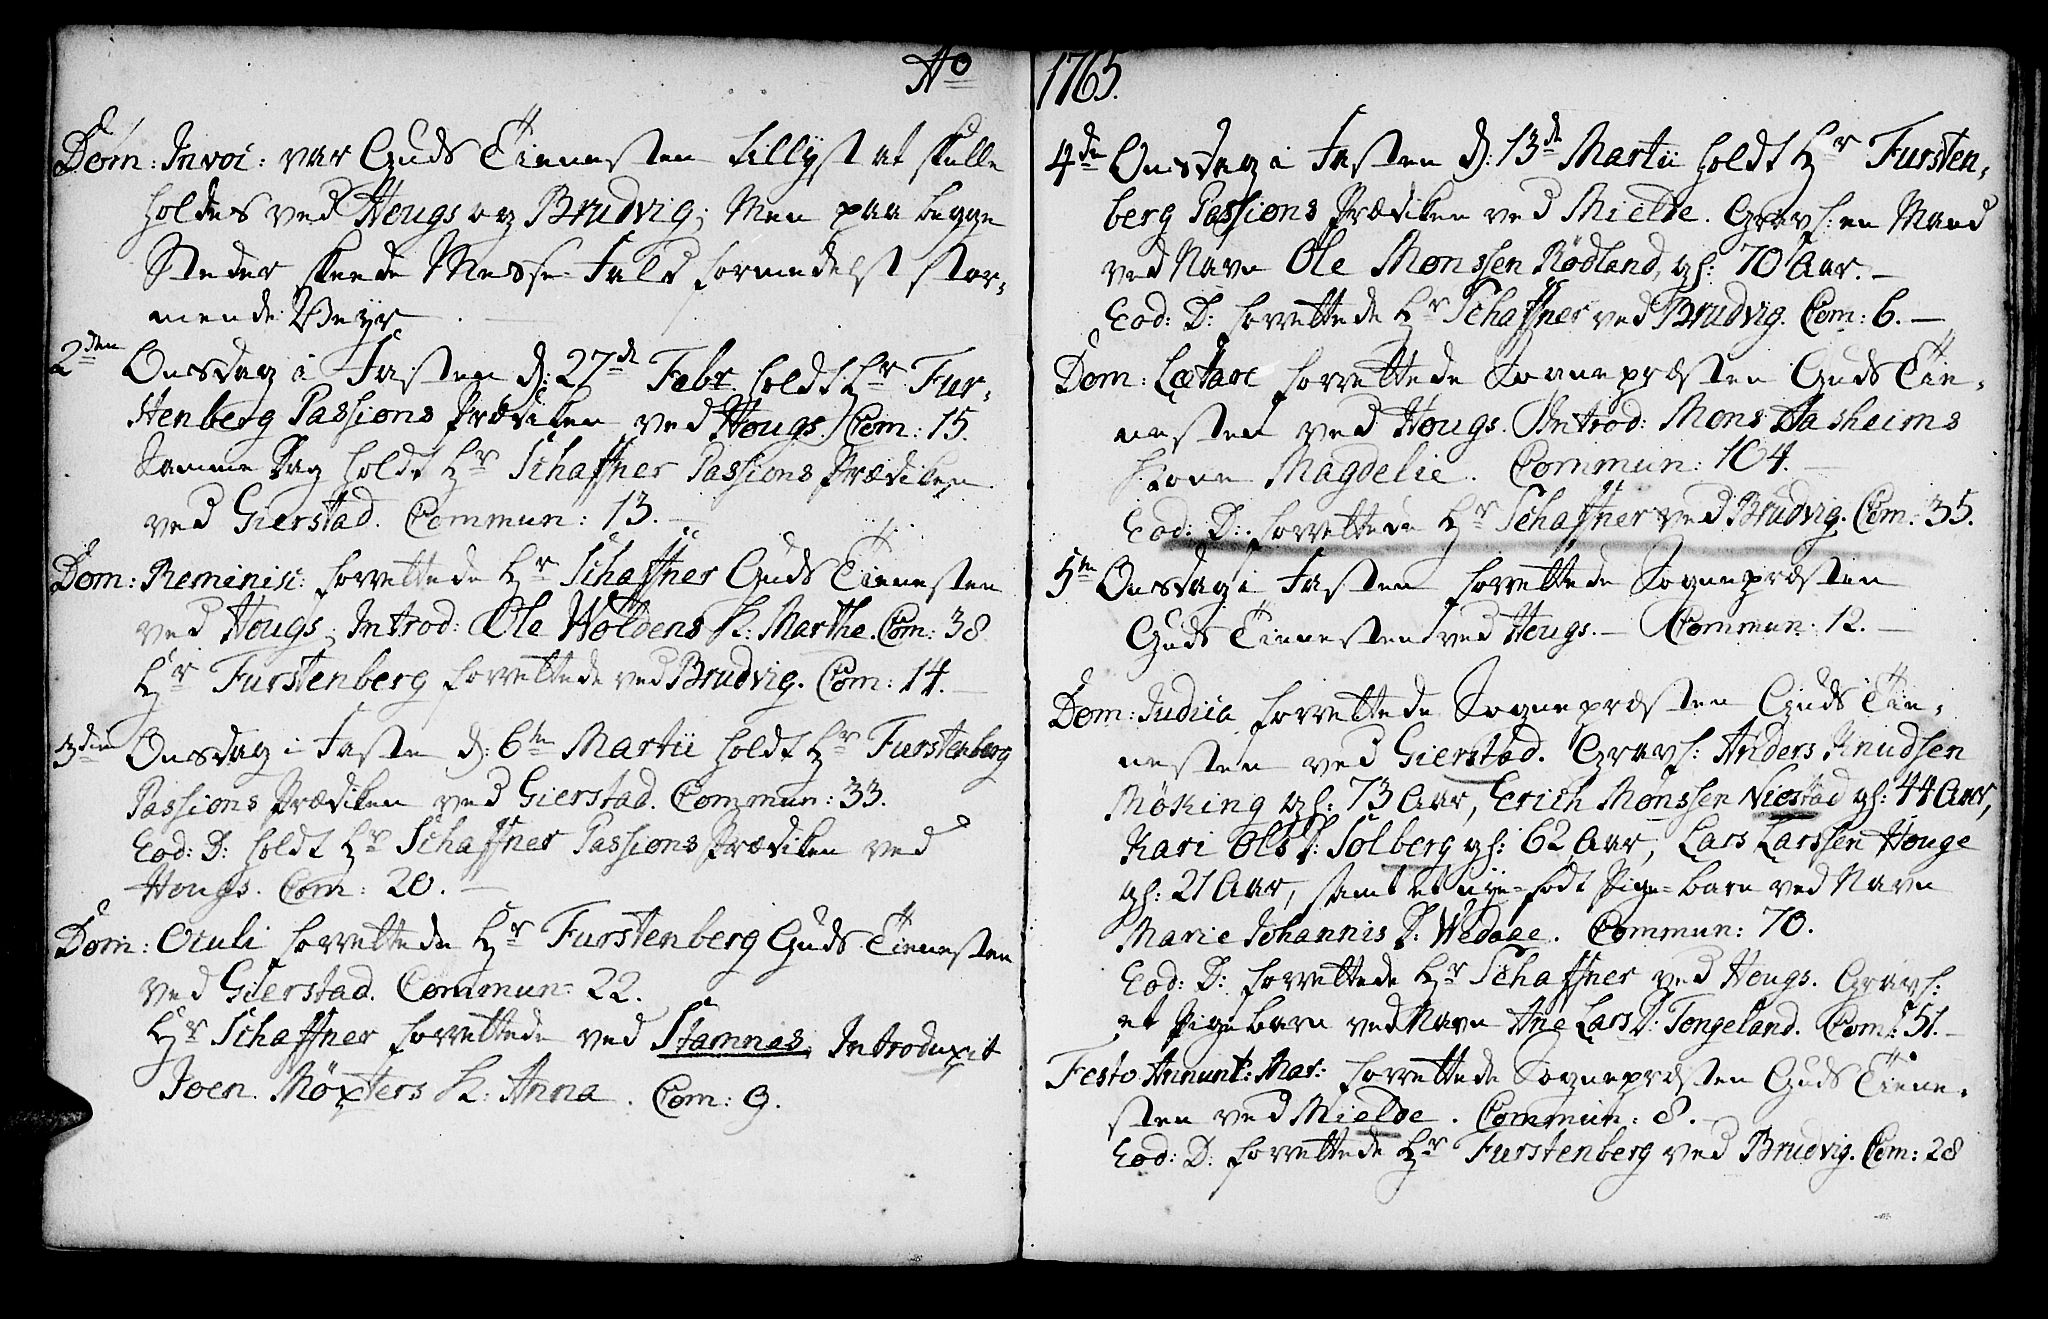 Ao
Dom: Invoc: var Guds Tienesten tillyst at skulle
holdes ved Hougs og Brudvig; Men paa begge
Steder skeede Messe-Fald formedelst stor-
mende Veyr.
2den Onsdag i Fasten d: 27de Febr. holdt Hr Fur-
stenberg Passions Prædiken ved Hougs. Com: 15.
Samme Dag holdt Hr Schaffner Passions Prædiken
ved Gierstad. Commun: 13.
Dom: Reminisc: forrettede Hr Schaffner Guds Tienesten
ved Hougs, Introd: Ole Woldens K: Marthe. Com: 38
Hr Furstenberg forrettede ved Brudvig. Com: 14.
3die Onsdag i Faste d: 6te Martii holdt Hr Furstenberg
Passions Prædiken ved Gierstad. Commun: 33.
Eod: D: holdt Hr Schaffner Passions Prædiken ved
Hougs. Com: 20.
Dom: Oculi forrettede Hr Furstenberg Guds Tienesten
ved Gierstad. Commun: 22.
Hr Schaffner forrettede ved Stamnæs. Introduxit
Joen Møxters K: Anna. Com: 9.
1765.
4de Onsdag i Fasten d: 13de Martii holdt Hr Fursten-
berg Passions Prædiken ved Mielde. Gravf: en Mand
ved Navn Ole Monssen Rødland, gl: 70 Aar.
Eod: D: forrettede Hr Schaffner ved Brudvig. Com: 6.
Dom: Lætare forrettede Sognepræsten Guds Tie-
nesten ved Hougs. Introd: Mons Aasheims
Kone Magdelie. Commun: 104.
Eod: D: forrettede Hr Schaffner ved Brudvig. Com: 35.
5te Onsdag i Fasten forrettede Sognepræsten
Guds Tienesten ved Hougs. Commun: 12.
Dom: Judica forrettede Sognepræsten Guds Tie-
nesten ved Gierstad. Gravf: Anders Knudsen
Møking gl: 73 Aar, Erich Monssen Niostad gl: 44 Aar,
Kari Ols D: Solberg gl: 62 Aar, Lars Larssen Houge
gl: 21 Aar, samt et nye-født Pige-barn ved Navn
Marie Johannis D: Wedaae. Commun: 70.
Eod: D: forrettede Hr Schaffner ved Hougs. Gravf:
et Pigebarn ved Navn Ane Lars D: Tengeland. Com: 51.
Festo Annunt: Mar: forrettede Sognepræsten Guds Tiene-
sten ved Mielde. Commun: 8.
Eod: D: forrettede Hr Furstenberg ved Brudvig. Com: 28